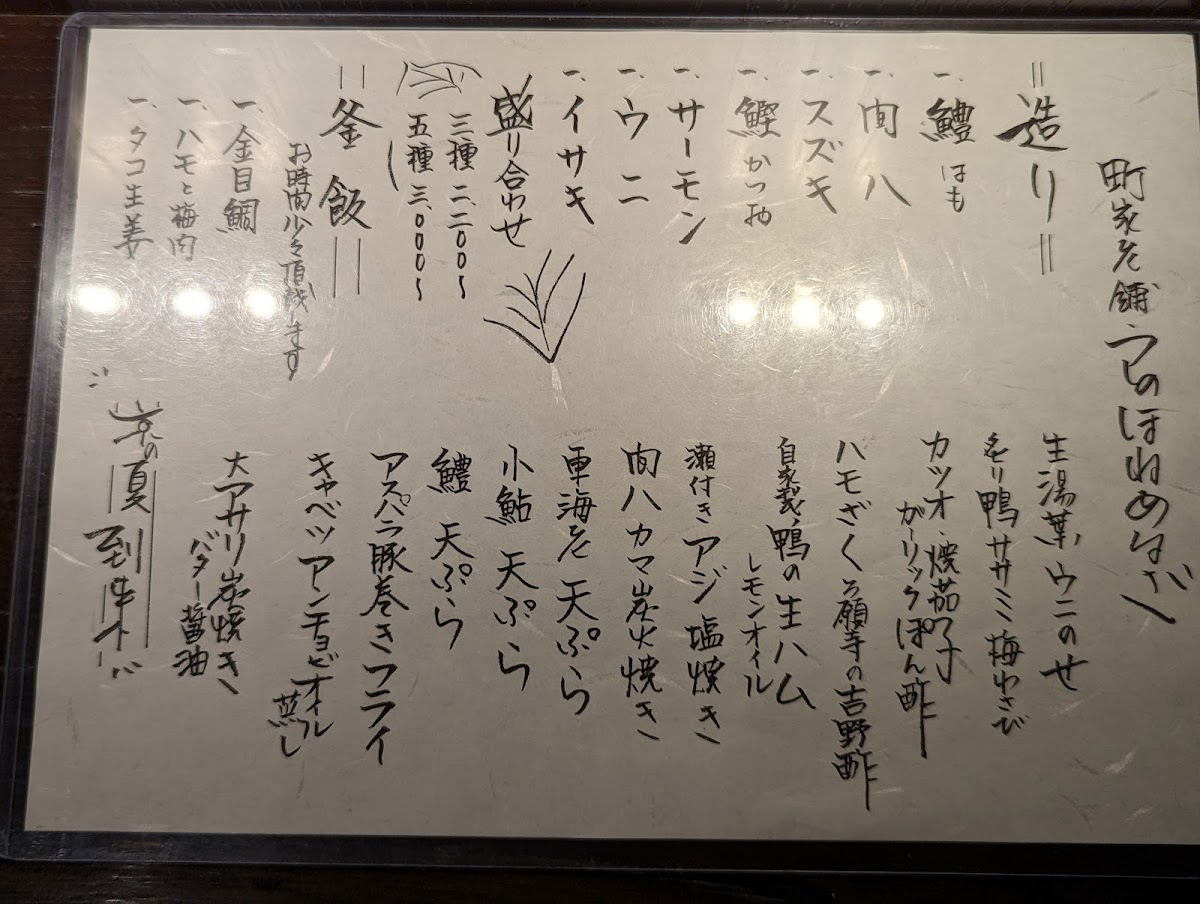 町家老舗うしのほねめにゅー
=造り=
一、鱧 はも
一、間八
一、スズキ
一、鰹 かつお
一、サーモン
一、ウニ
一、イサキ
盛り合わせ
三種 二、二〇〇〜
五種 三、〇〇〇〜
=釜飯=
お時間少々頂戴します
一、金目鯛
一、ハモと梅肉
一、タコ生姜
生湯葉、ウニのせ
炙り鴨ササミ 梅わさび
カツオ・焼茄子
ガーリックぽん酢
ハモざく 万願寺の吉野酢
自家製、鴨の生ハム
レモンオイル
瀬付きアジ 塩焼き
間八カマ炭火焼き
車海老 天ぷら
小鮎 天ぷら
鱧 天ぷら
アスパラ豚巻きフライ
キャベツアンチョビオイル
蒸し
大アサリ炭焼き
バター醤油
京の夏到来!!